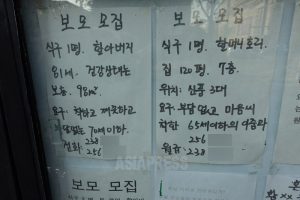 보모 모집
식구 1명. 할아버지
81세. 건강상태는
보통. 98m²
요구: 착하고 깨끗하고
부담없는 70세이하.
전화: 258
256
보모 모집
식구 1명. 할머니 홀로
집 120평. 7층.
위치: 신풍 3대
요구: 부담없고 마음씨
착한 65세이하의
256
238
ASIAPRESS
보모 모집